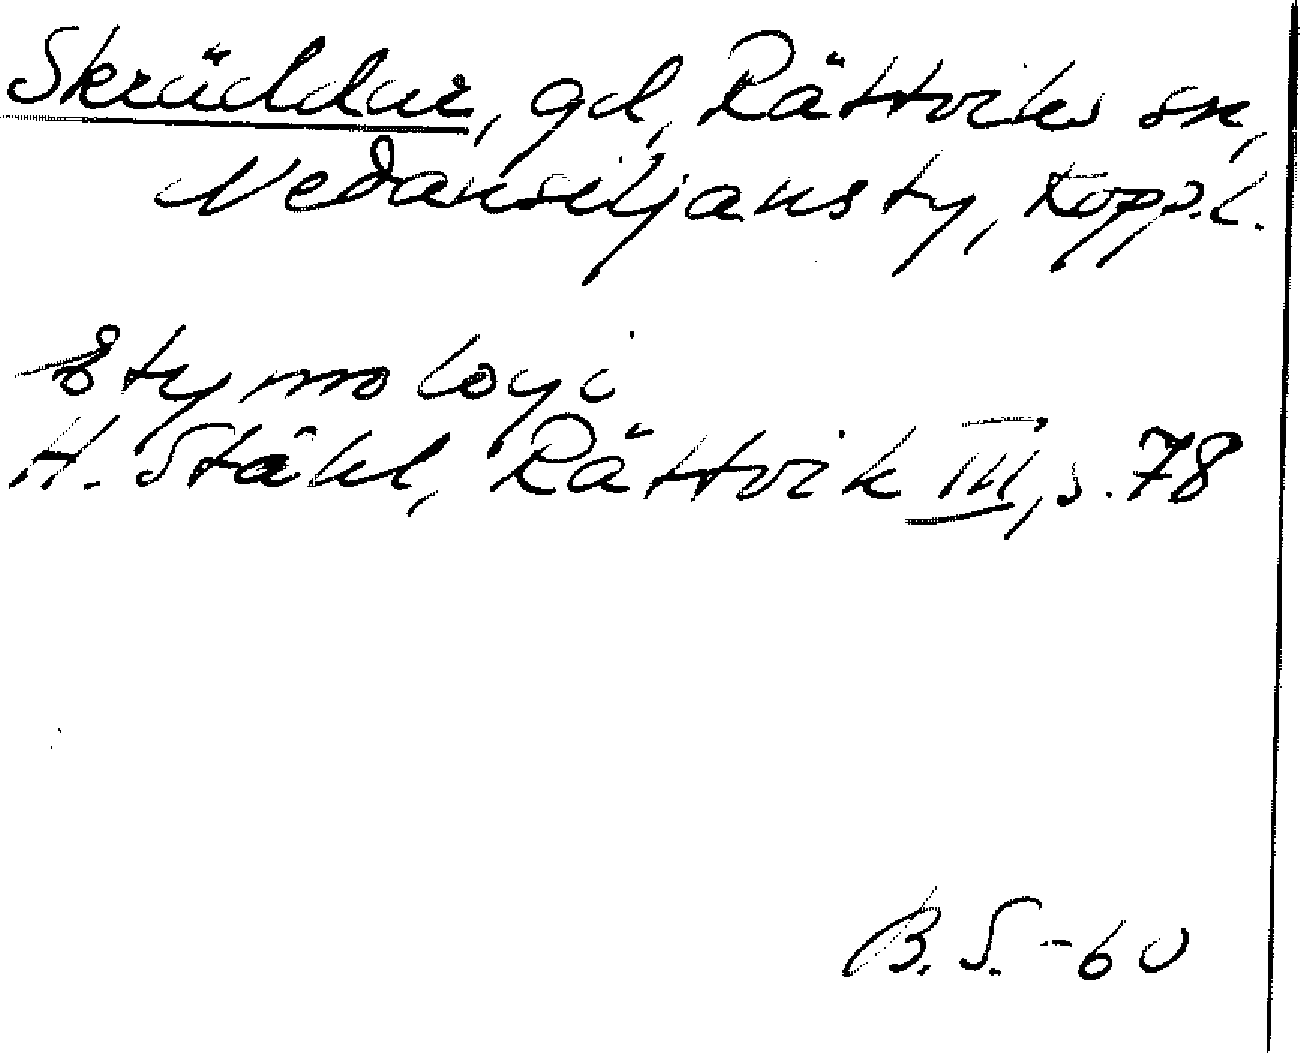 Skräddar, gd, Rättviks sn,
Nedansiljans ty, Kopp.l.
Etymologi
H. Ståhl, Rättvik III, s. 78
B. S. -60